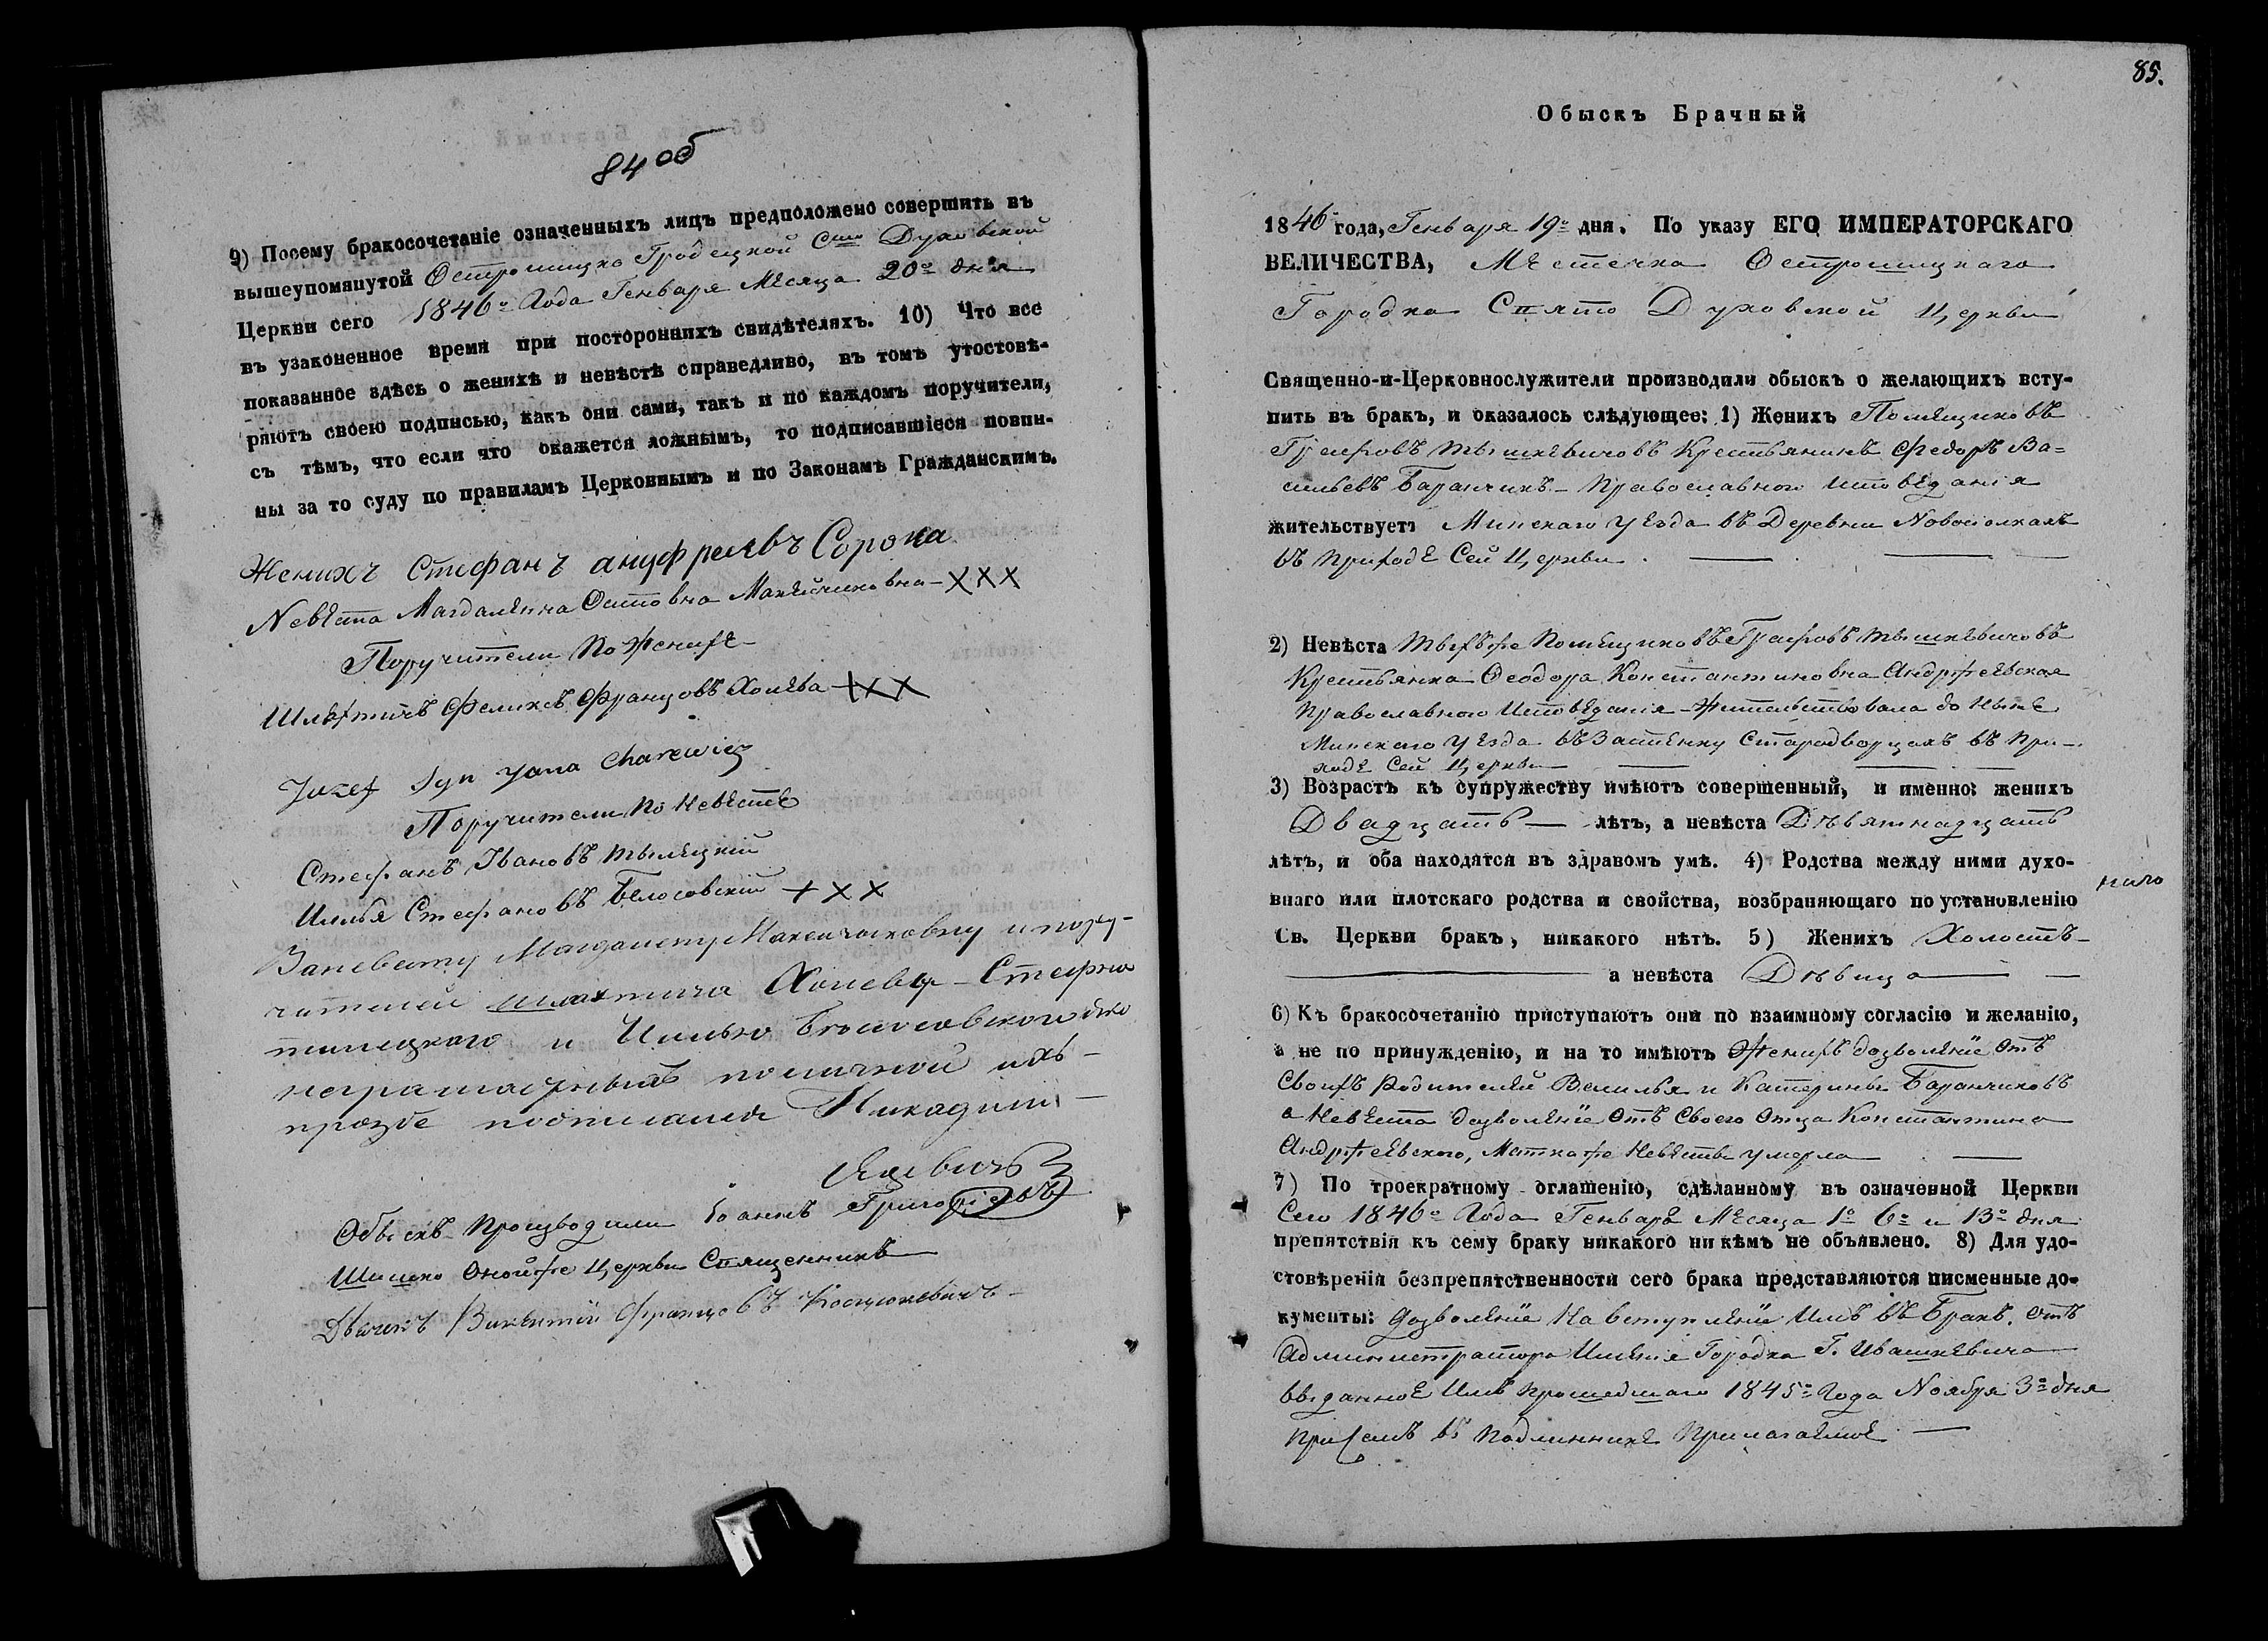 84 об
9) Посему бракосочетаніе означенныхъ лицъ предположено совершить въ
вышеупомянутой Острошицко Гродецкой Сто Духовской
Церкви сего 1846го Года Генваря Мѣсяца 20го дня
въ узаконенное время при постороннихъ свидѣтеляхъ. 10) Что все
показанное здѣсь о женихѣ и невѣстѣ справедливо, въ томъ утостовѣ-
ряютъ своею подписью, какъ они сами, такъ и по каждомъ поручители,
съ тѣмъ, что если что окажется ложнымъ, то подписавшіеся повин-
ны за то суду по правиламъ Церковнымъ и по Законамъ Гражданскимъ.
Женихъ Стефанъ Ануфреевъ Сорока
Невѣста Магдалѣна Осиповна XXX
Поручители По Женихѣ
Шляхтичъ Феликсъ Францовъ Хоцѣва XXX
Juzef Syn Jana Charewicz
Поручители По Невѣстѣ
Стефанъ Ивановъ
Илья Стефановъ XXX
За невѣсту Магдалену и пору-
чителей шляхтича Стефана
и Илью
неграмотныхъ по личной ихъ
прозбе подписался Никадим
Яцевичъ
Обыскъ Производили Іоаннъ Григоріевъ
Шишко Оной же Церкви Священникъ
Дьячекъ Викентій Францовъ Косцюкевичъ
85.
Обыскъ Брачный
1846 года, Генваря 19го дня. По указу ЕГО ИМПЕРАТОРСКАГО
ВЕЛИЧЕСТВА, Мѣстечка Острошицкаго
Городка Свято Духовской Церкви
Священно-и-Церковнослужители производили обыскъ о желающихъ всту-
пить въ бракъ, и оказалось слѣдующее: 1) Женихъ Помѣщиковъ
Графовъ Тышкѣвичовъ Крестьянинъ Федоръ Ва=
сильевъ Баранчикъ - Православного Исповѣданія
жительствуетъ Минскаго Уѣзда въ Деревни Новоселкахъ
въ Приходѣ Сей Церкви
2) Невѣста Тѣхъ же Помѣщиковъ Графовъ Тышкѣвичовъ
Крестьянка Ѳеодора Константиновна Андржеѣвская
Православного Исповѣданія - Жительствовала до Нынѣ
Минскаго Уѣзда въ Застѣнку Стародворцахъ въ При-
ходѣ Сей Церкви
3) Возрастъ къ супружеству имѣютъ совершенный, и именно: женихъ
Двадцать лѣтъ, а невѣста Дѣвятнадцать
лѣтъ, и оба находятся въ здравомъ умѣ. 4) Родства между ними духо-
внаго или плотскаго родства и свойства, возбраняющаго по установленію
Св. Церкви бракъ, никакого нѣтъ. 5) Женихъ Холостъ
а невѣста Дѣвица
6) Къ бракосочетанію приступаютъ они по взаимному согласію и желанію,
а не по принужденію, и на то имѣютъ Женихъ дозволѣніе Отъ
Своихъ Родителѣй Василья и Катерины Баранчиковъ
а Невѣста дозволѣніе Отъ Своего Отца Константина
Андржеѣвского, Матка же Невѣсты умерла
7) По троекратному оглашенію, сдѣланному въ означенной Церкви
Сего 1846го Года Генваря Мѣсяца 1го 6го и 13го дня
препятствія къ сему браку никакого никѣмъ не объявлено. 8) Для удо-
стовѣренія безпрепятственности сего брака представляются писменные до-
кументы: дозволѣніе На вступлѣніе Имъ въ Бракъ. Отъ
Администратора Имѣнія Городка Г. Ивашкѣвича
выданноѣ Имъ Прошедшаго 1845го Года Ноября 3го дня
При семъ въ Подлинникѣ Прилагаѣмоѣ